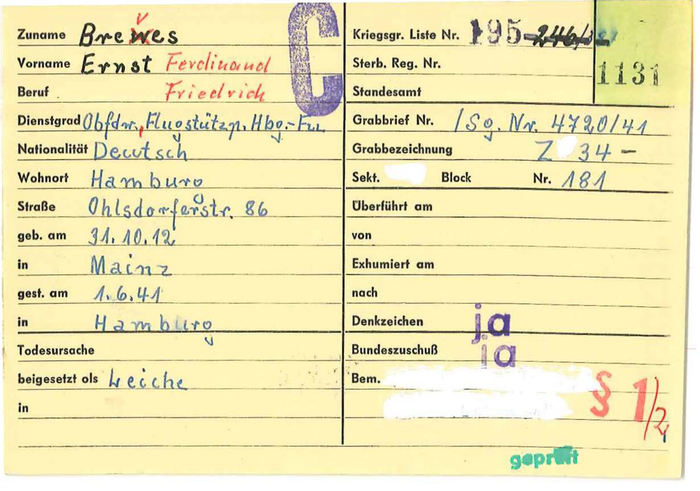 Zuname Brewes v
Vorname Ernst Ferdinand
Beruf Friedrich
Dienstgrad Obfdw., Flugstützp. Hbg.-Fu
Nationalität Deutsch
Wohnort Hamburg
Straße Ohlsdorferstr. 86
geb. am 31.10.12
in Mainz
gest. am 1.6.41
in Hamburg
Todesursache
beigesetzt als Leiche
in
C
Kriegsgr. Liste Nr. 195 246/3
1131
Sterb. Reg. Nr.
Standesamt
Grabbrief Nr. /Sg. Nr. 4720/41
Grabbezeichnung Z 34 –
Sekt. Block Nr. 181
Überführt am
von
Exhumiert am
nach
Denkzeichen ja
Bundeszuschuß ja
Bem.
§ 1/2
geprüft